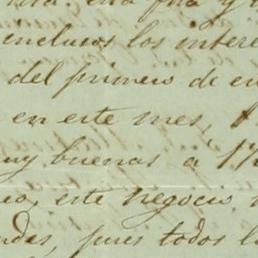 incluso los intere
del primero de en
en este mes,
uy buenas a 17
eo, este negocio
ndes, pues todos l